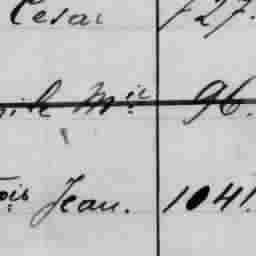 César 727.
Mic 96.
ois Jean. 1041.